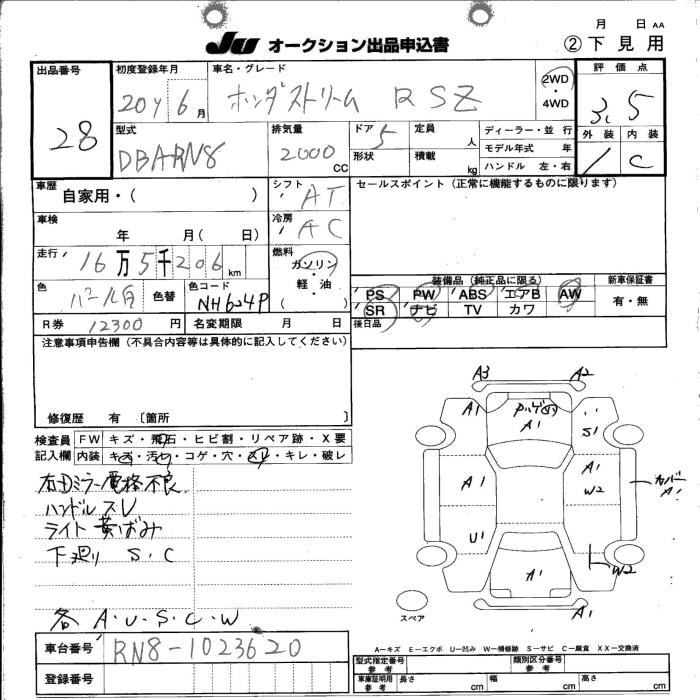 月 日 AA
JU オークション出品申込書
②下見用
出品番号 28
初度登録年月 20y 6月
車名・グレード ホンダストリーム RSZ
2WD ・ 4WD
評価点 3.5
外装 内装
/ C
型式 DBARN8
排気量 2000 CC
ドア 5
形状
定員 人
積載 kg
ディーラー・並行
モデル年式 年
ハンドル 左・右
車歴 自家用・( )
シフト AT
セールスポイント（正常に機能するものに限ります）
車検 年 月( 日)
冷房 AC
走行 16万5千206km
燃料 ガソリン・軽・油 ( )
色 パール白
色替
色コード NH624P
装備品（純正品に限る）
PS PW ABS エアB AW
SR ナビ TV カワ
新車保証書
有・無
R券 12300円
名変期限 月 日
後日品
注意事項申告欄（不具合内容等は具体的に記入してください）
修復歴 有 〔箇所 〕
検査員記入欄
FW キズ・飛石・ヒビ割・リペア跡・X要
内装 キズ・汚レ・コゲ・穴・スレ・キレ・破レ
右Dミラー電格不良
ハンドルスレ
ライト黄ばみ
下廻り S・C
各 A・U・S・C・W
A3 A2
A1 A1
S1
A1 A1
W2
カバー A1
U1
W2
A1
A1
スペア
車台番号 RN8-1023620
登録番号
A-キズ E-エクボ U-凹み W-補修跡 S-サビ C-腐食 XX-交換済
型式指定番号 参考
類別区分番号 参考
車庫証明用 参考
長さ cm
幅 cm
高さ cm